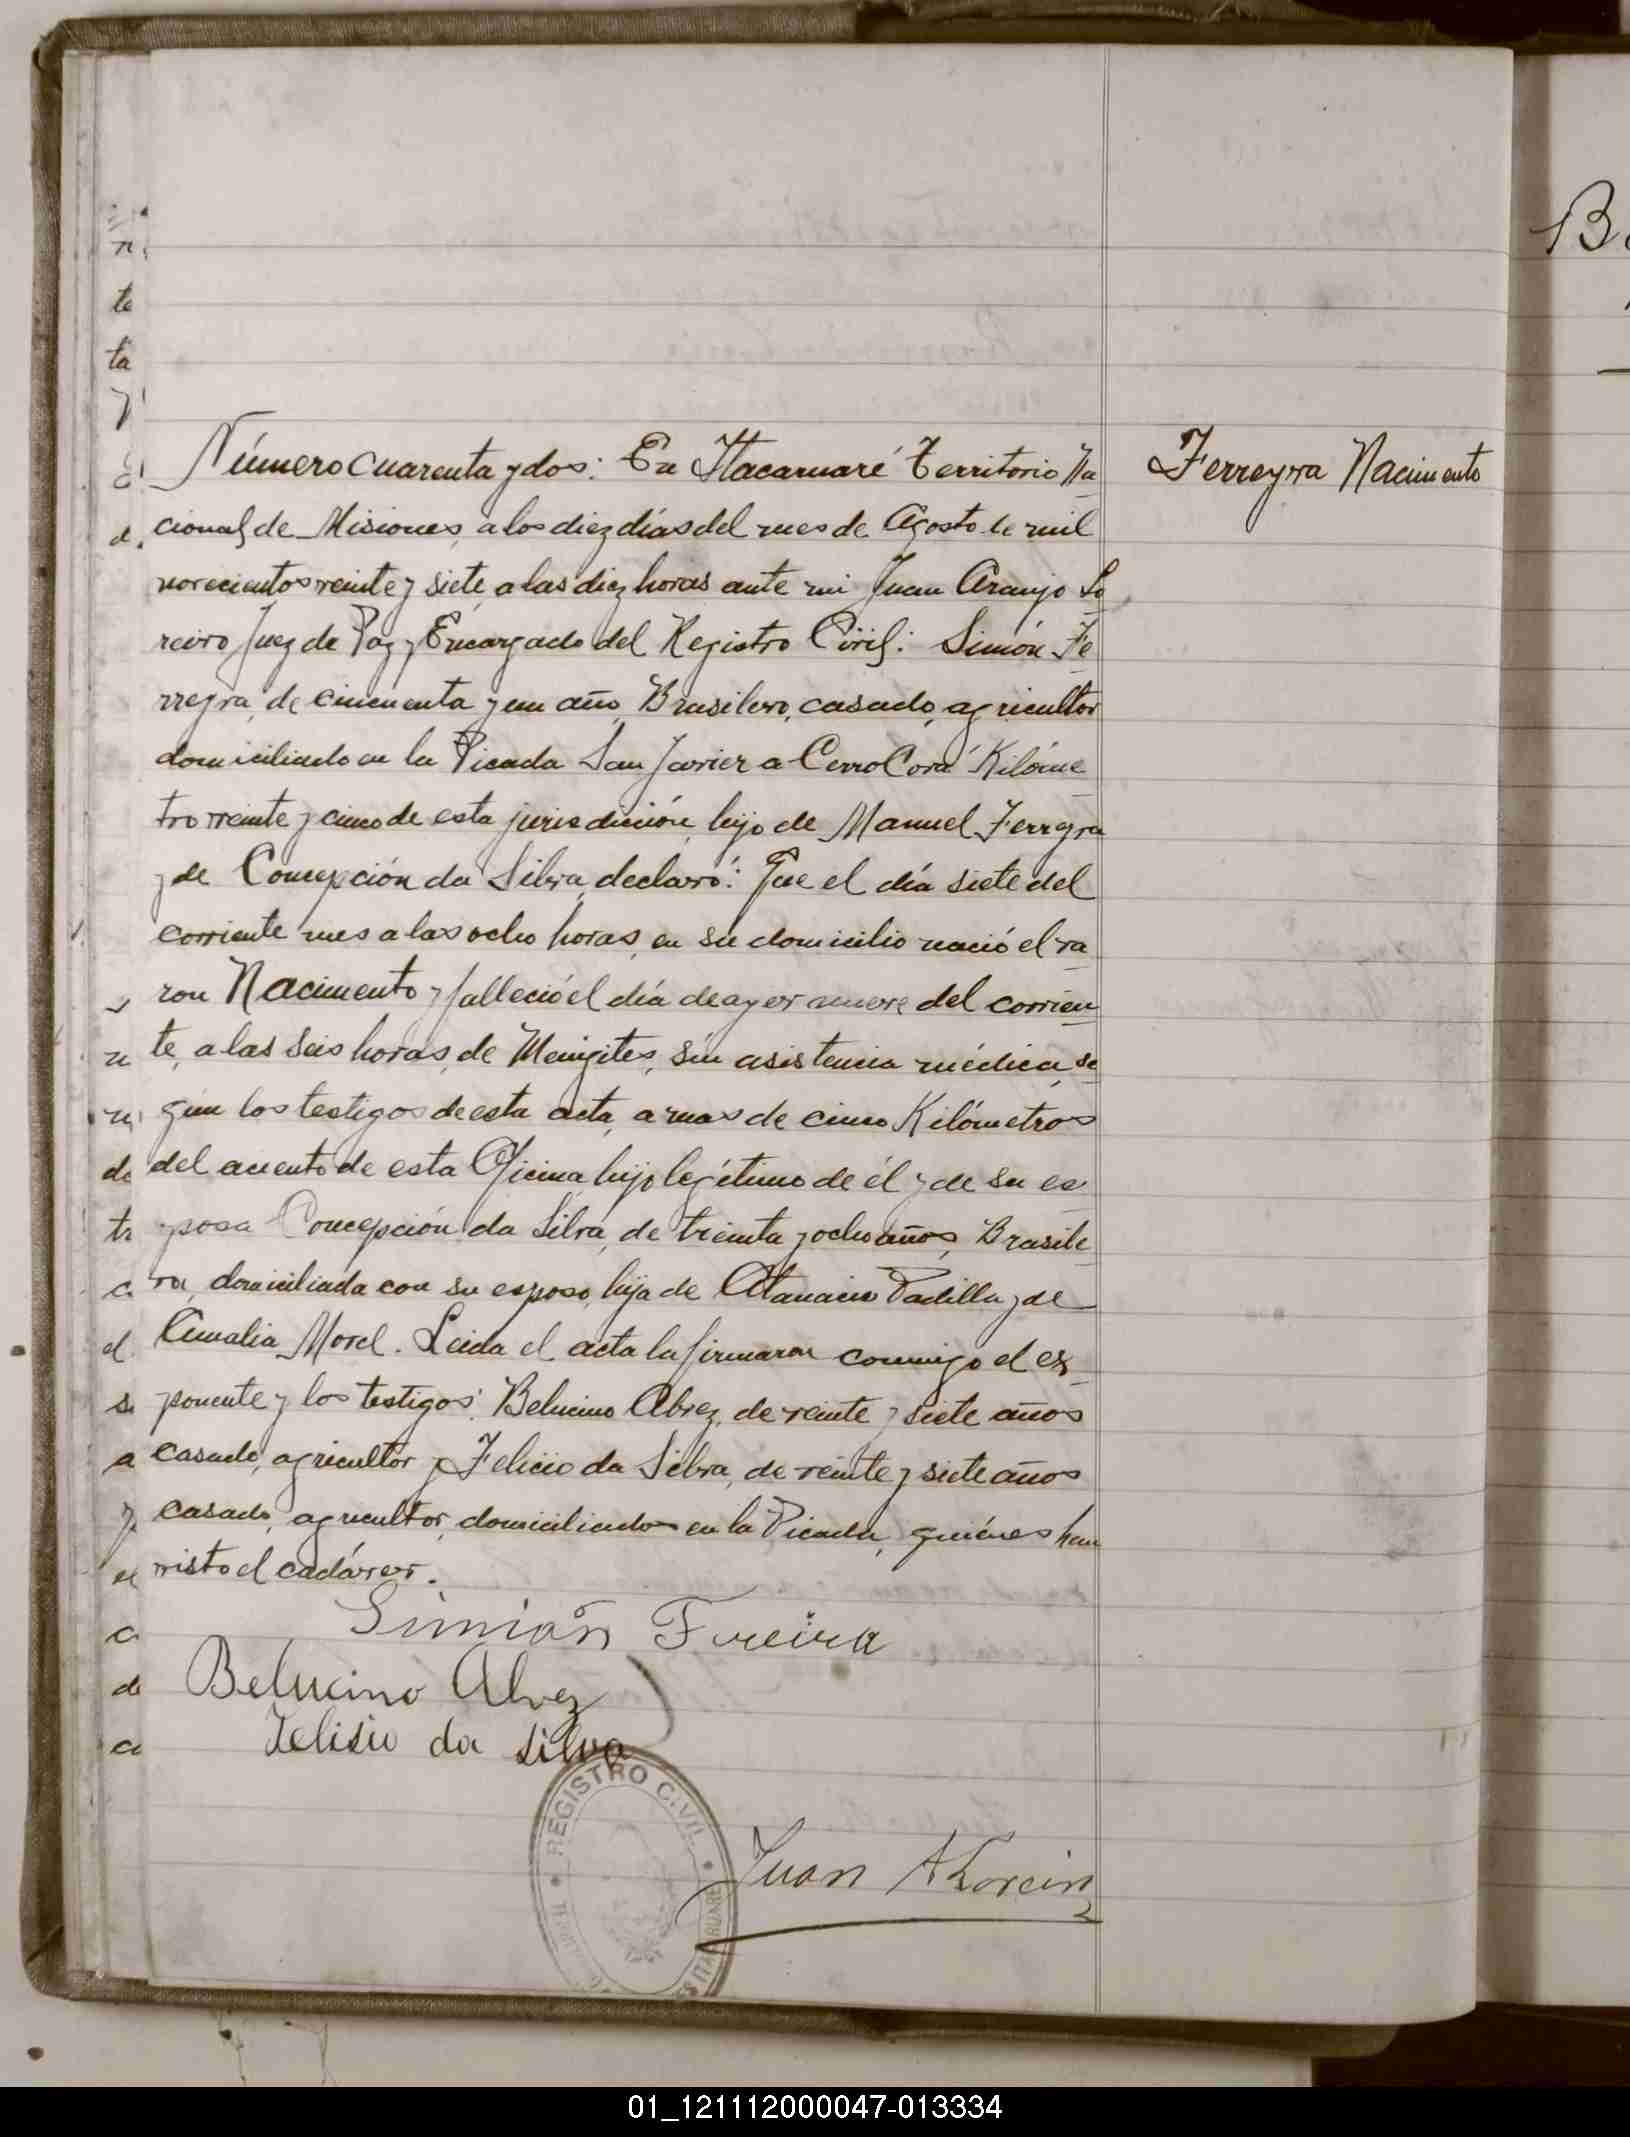 Número cuarenta y dos: En Itacaruaré Territorio Na
Ferreyra Nacimento
cional de Misiones, a los diez días del mes de Agosto de mil
novecientos veinte y siete, a las diez horas ante mi Juan Araujo Lo
reiro Juez de Paz y Encargado del Registro Civil: Simón Fe
rreyra, de cincuenta y un año, Brasilero, casado, agricultor
domiciliado en la Picada San Javier a Cerro Corá Kilóme
tro veinte y cinco de esta jurisdicción, hijo de Manuel Ferreyra
y de Concepción da Silva, declaró: Que el día siete del
corriente mes a las ocho horas, en su domicilio nació el va
ron Nacimento y falleció el día de ayer nueve del corrien
te, a las seis horas, de Meningites, sin asistencia médica, se
gun los testigos de esta acta, a mas de cinco Kilómetros
del aciento de esta Oficina, hijo legítimo de él y de su es
posa Concepción da Silva, de treinta y ocho años, Brasile
ra, domiciliada con su esposo, hija de Atanacio Padilla y de
Amalia Morel. Leida el acta la firmaron conmigo el ex
ponente y los testigos: Belucino Abrez, de veinte y siete años
casado, agricultor y Felicio da Silva, de veinte y siete años
casado, agricultor, domiciliados en la Picada, quiénes han
visto el cadáver.
Simión Fureira
Belucino Alvez
Felisio da Silva
REGISTRO CIVIL
Juan A Loreiro
B
01_121112000047-013334